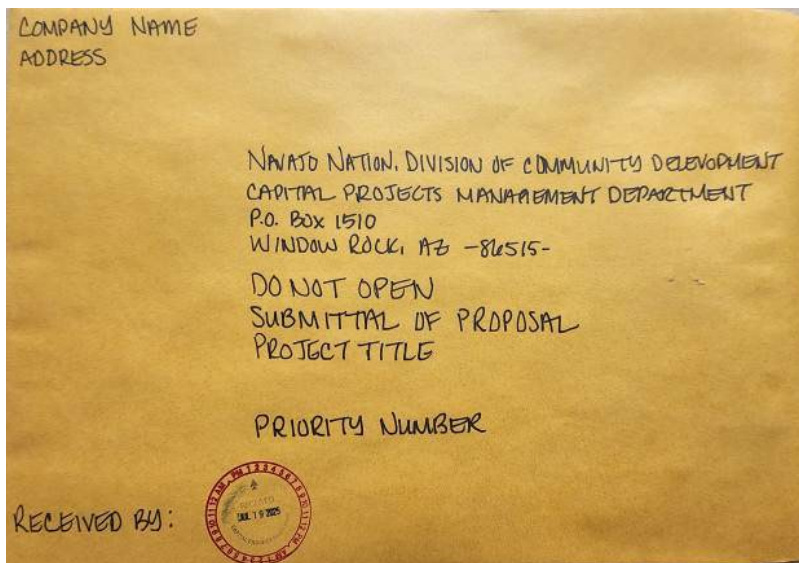 COMPANY NAME
ADDRESS
NAVAJO NATION, DIVISION OF COMMUNITY DELEVOPMENT
CAPITAL PROJECTS MANAGEMENT DEPARTMENT
P.O. BOX 1510
WINDOW ROCK, AZ -86515-
DO NOT OPEN
SUBMITTAL OF PROPOSAL
PROJECT TITLE
PRIORITY NUMBER
RECEIVED BY: